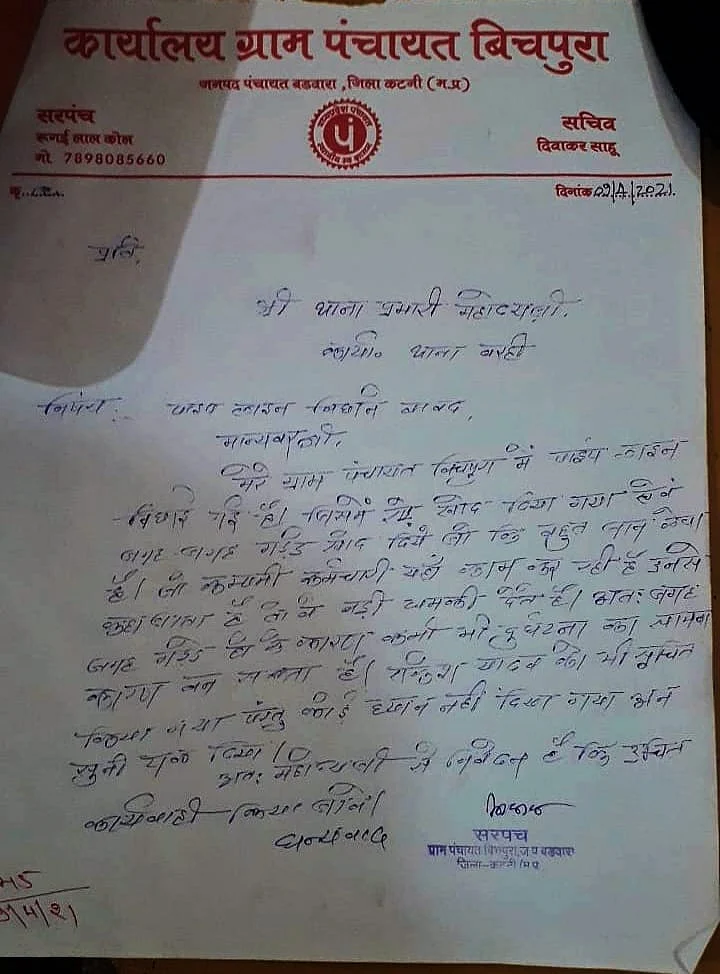 कार्यालय ग्राम पंचायत बिचपुरा
जनपद पंचायत बडवारा, जिला कटनी (म.प्र)
सरपंच
रूगई लाल कोल
मो. 7898085660
पं
सचिव
दिवाकर साहू
क्र.
दिनांक 09/4/2021
प्रति,
श्री थाना प्रभारी महोदयजी,
कार्या० थाना बरही
विषय:- पाइप लाइन बिछाने बावद,
मान्यवरजी,
मेरे ग्राम पंचायत बिचपुरा में पाईप लाइन
बिछाई गई है। जिसमें रोड खोद दिया गया एवं
जगह जगह गड्ढे खोद दिये जो कि बहुत जान लेवा
है। जो कम्पनी कर्मचारी यहाँ काम कर रही है उनसे
कहा जाता है तो वे बड़ी धमकी देते है। अतः जगह
जगह गड्ढे होने के कारण कभी भी दुर्घटना का सामना
कारण बन सकता है। राकेश यादव को भी सूचित
किया गया परंतु कोई ध्यान नहीं दिया गया अन
सुनी कर दिया।
अतः महोदयजी से निवेदन है कि उचित
कार्यवाही किया जावे।
धन्यवाद
सरपंच
ग्राम पंचायत बिचपुरा, ज.प. बडवारा
जिला-कटनी म.प्र.
/4/21